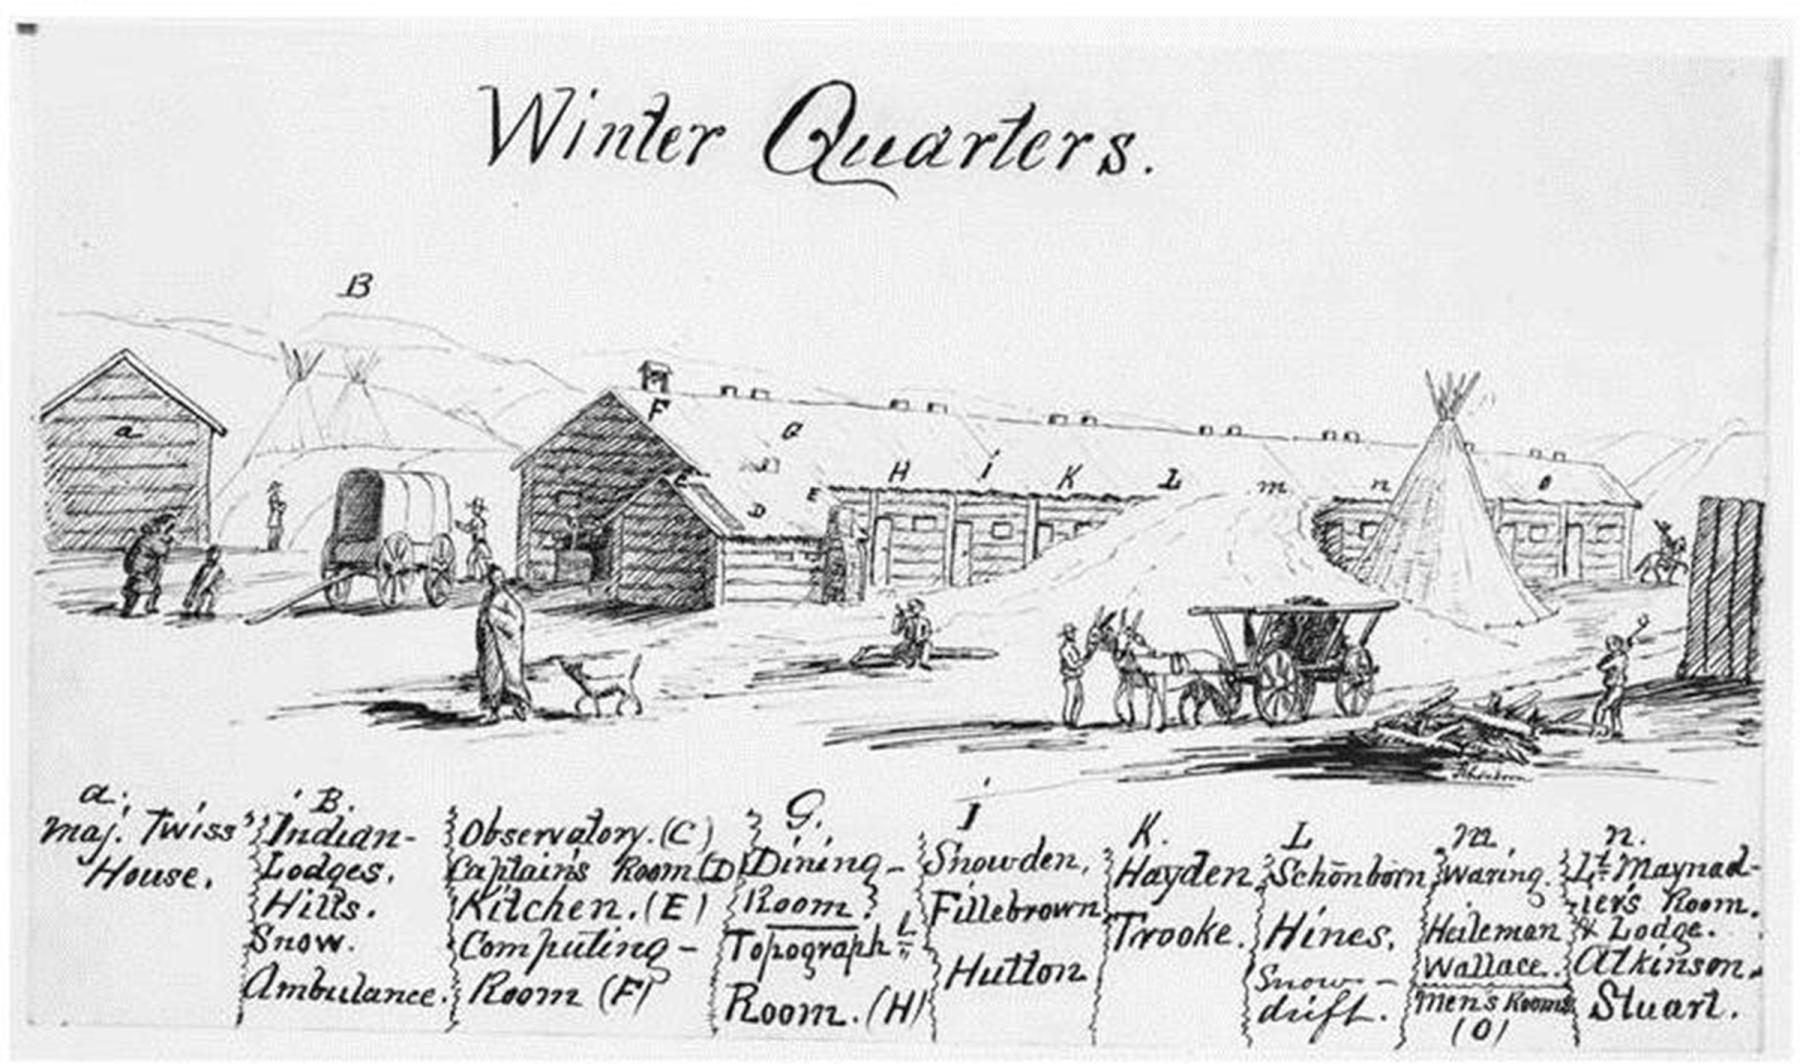 Winter Quarters.
B
a
F
G
C
D
E
H
i
K
L
m
n
O
a.
Maj. Twiss'
House.
B.
Indian-
Lodges.
Hills.
Snow.
Ambulance.
Observatory. (C)
Captain's Room (D)
Kitchen. (E)
Computing-
Room (F)
G.
Dining-
Room.
Topograph.l
Room. (H)
i
Snowden,
Fillebrown
Hutton
K.
Hayden
Trooke.
L
Schönborn
Hines.
Snow-
drift.
m.
Waring.
Heileman
Wallace.
Men's Rooms
(O)
n.
Lt. Maynad-
ier's Room.
& Lodge.
Atkinson.
Stuart.